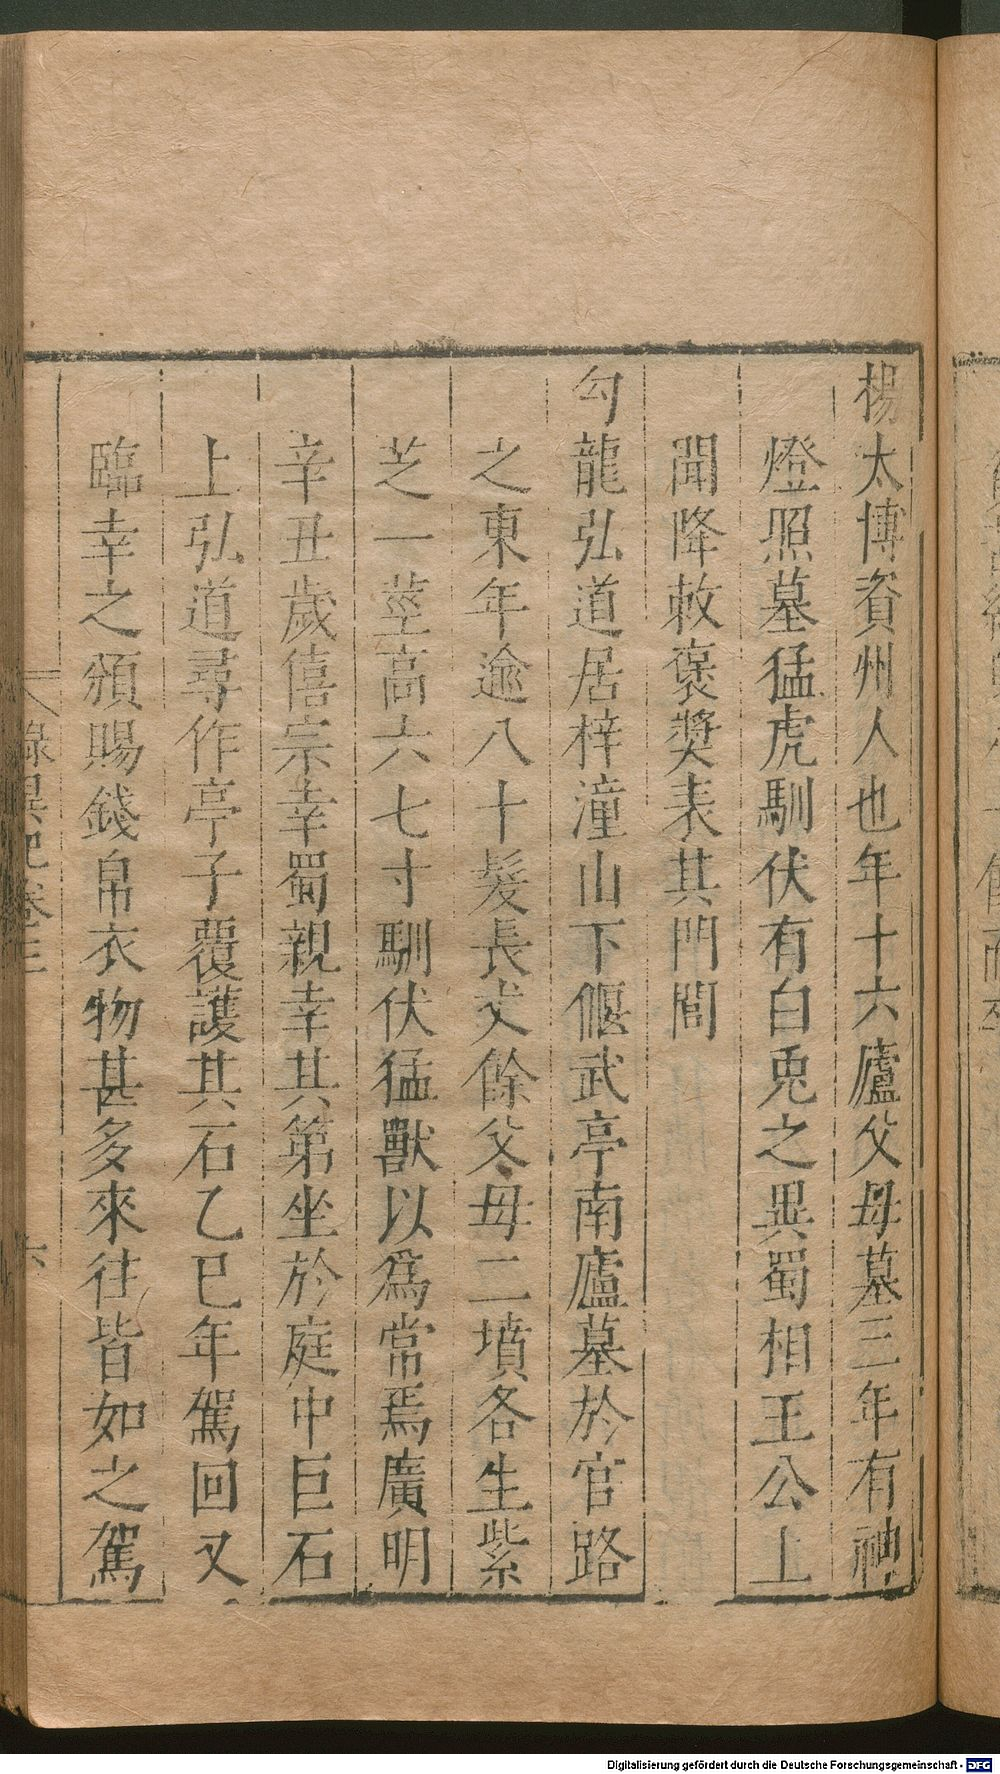 楊太博資州人也年十六廬父母墓三年有神
燈照墓猛虎馴伏有白兎之異蜀相王公上
聞降敕襃奬表其門閭
勾龍弘道居梓潼山下偃武亭南廬墓於官路
之東年逾八十髮長丈餘父母二墳各生紫
芝一莖高六七寸馴伏猛獸以爲常焉廣明
辛丑歲僖宗幸蜀親幸其第坐於庭中巨石
上弘道尋作亭子覆護其石乙巳年駕回又
臨幸之頒賜錢帛衣物甚多來往皆如之駕
錄異記卷三
六
Digitalisierung gefördert durch die Deutsche Forschungsgemeinschaft - DFG